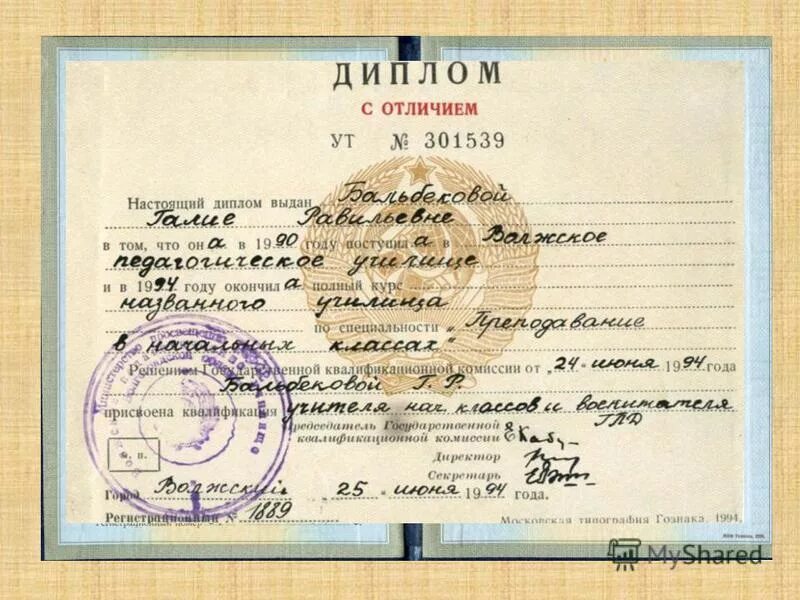 ДИПЛОМ
С ОТЛИЧИЕМ
УТ № 301539
Настоящий диплом выдан Бальбековой
Галие Равильевне
в том, что она в 1990 году поступила в Волжское
педагогическое училище
и в 1994 году окончила полный курс
названного училища
по специальности „Преподавание
в начальных классах"
Решением Государственной квалификационной комиссии от „24" июня 1994 года
Бальбековой Г. Р.
присвоена квалификация учителя нач. классов и воспитателя
ГПД
Председатель Государственной
квалификационной комиссии
Директор
Секретарь
м. п.
Город Волжский 25 июня 1994 года.
Регистрационный № 1889
Московская типография Гознака, 1994.
MyShared